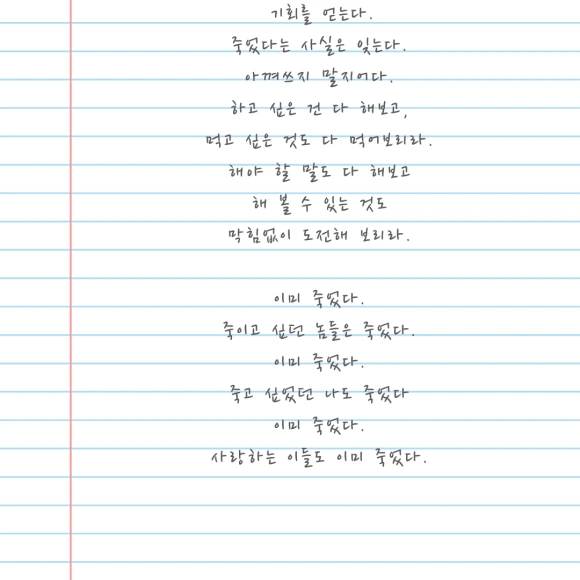 기회를 얻는다.
죽었다는 사실은 잊는다.
아껴쓰지 말지어다.
하고 싶은 건 다 해보고,
먹고 싶은 것도 다 먹어보리라.
해야 할 말도 다 해보고
해 볼 수 있는 것도
막힘없이 도전해 보리라.
이미 죽었다.
죽이고 싶던 놈들은 죽었다.
이미 죽었다.
죽고 싶었던 나도 죽었다
이미 죽었다.
사랑하는 이들도 이미 죽었다.